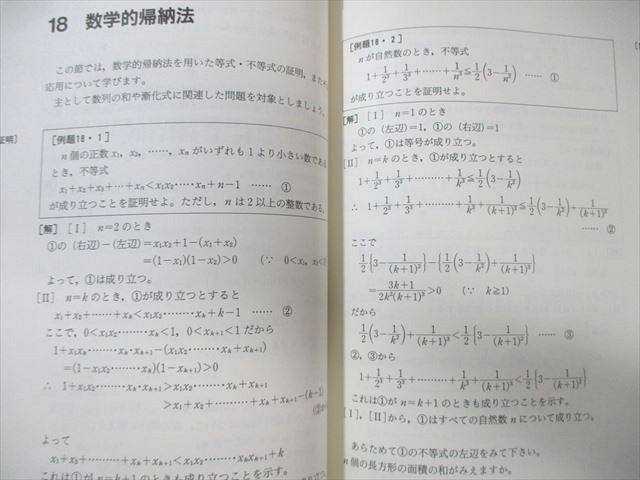 18 数学的帰納法
この節では,数学的帰納法を用いた等式・不等式の証明,また
応用について学びます。
主として数列の和や漸化式に関連した問題を対象としましょう。
証明〕
[例題18・1]
n個の正数 x₁, x₂, ……, xₙ がいずれも1より小さい数である
とき,不等式
x₁+x₂+x₃+…+xₙ<x₁x₂……xₙ+n−1 …… ①
が成り立つことを証明せよ。ただし,nは2以上の整数である。
[解] [I] n=2のとき
①の(右辺)−(左辺)=x₁x₂+1−(x₁+x₂)
=(1−x₁)(1−x₂)>0 (∵ 0<x₁, x₂<1
よって,①は成り立つ。
[II] n=kのとき,①が成り立つとすると
x₁+x₂+……+xₖ<x₁x₂……xₖ+k−1 …… ②
ここで,0<x₁x₂……xₖ<1, 0<xₖ₊₁<1 だから
1+x₁x₂……xₖ・xₖ₊₁−(x₁x₂……xₖ+xₖ₊₁)
=(1−x₁x₂……xₖ)(1−xₖ₊₁)>0
∴ 1+x₁x₂……xₖ・xₖ₊₁>x₁x₂……xₖ+xₖ₊₁
>x₁+x₂+………+xₖ+xₖ₊₁−(k−1)
よって
x₁+x₂+………+xₖ+xₖ₊₁<x₁x₂……xₖxₖ₊₁+k
これは①がn=k+1のときも成り立つことを示す。
[例題18・2]
nが自然数のとき,不等式
1+1/2³+1/3³+……+1/n³≦1/2(3−1/n²) …… ①
が成り立つことを証明せよ。
[解] [I] n=1のとき
①の(左辺)=1, ①の(右辺)=1
よって,①は等号が成り立つ。
[II] n=kのとき,①が成り立つとすると
1+1/2³+1/3³+………+1/k³≦1/2(3−1/k²)
∴ 1+1/2³+1/3³+………+1/k³+1/(k+1)³≦1/2(3−1/k²)+1/(k+1)³
…… ②
ここで
1/2{3−1/(k+1)²}−{1/2(3−1/k²)+1/(k+1)³}
=3k+1/2k²(k+1)³>0 (∵ k≧1)
だから
1/2(3−1/k²)+1/(k+1)³<1/2{3−1/(k+1)²} …… ③
②,③から
1+1/2³+1/3³+………+1/k³+1/(k+1)³<1/2{3−1/(k+1)²}
これは①がn=k+1のときも成り立つことを示す。
[I], [II]から,①はすべての自然数nについて成り立つ。
あらためて①の不等式の左辺をみて下さい。
n個の長方形の面積の和がみえますか。